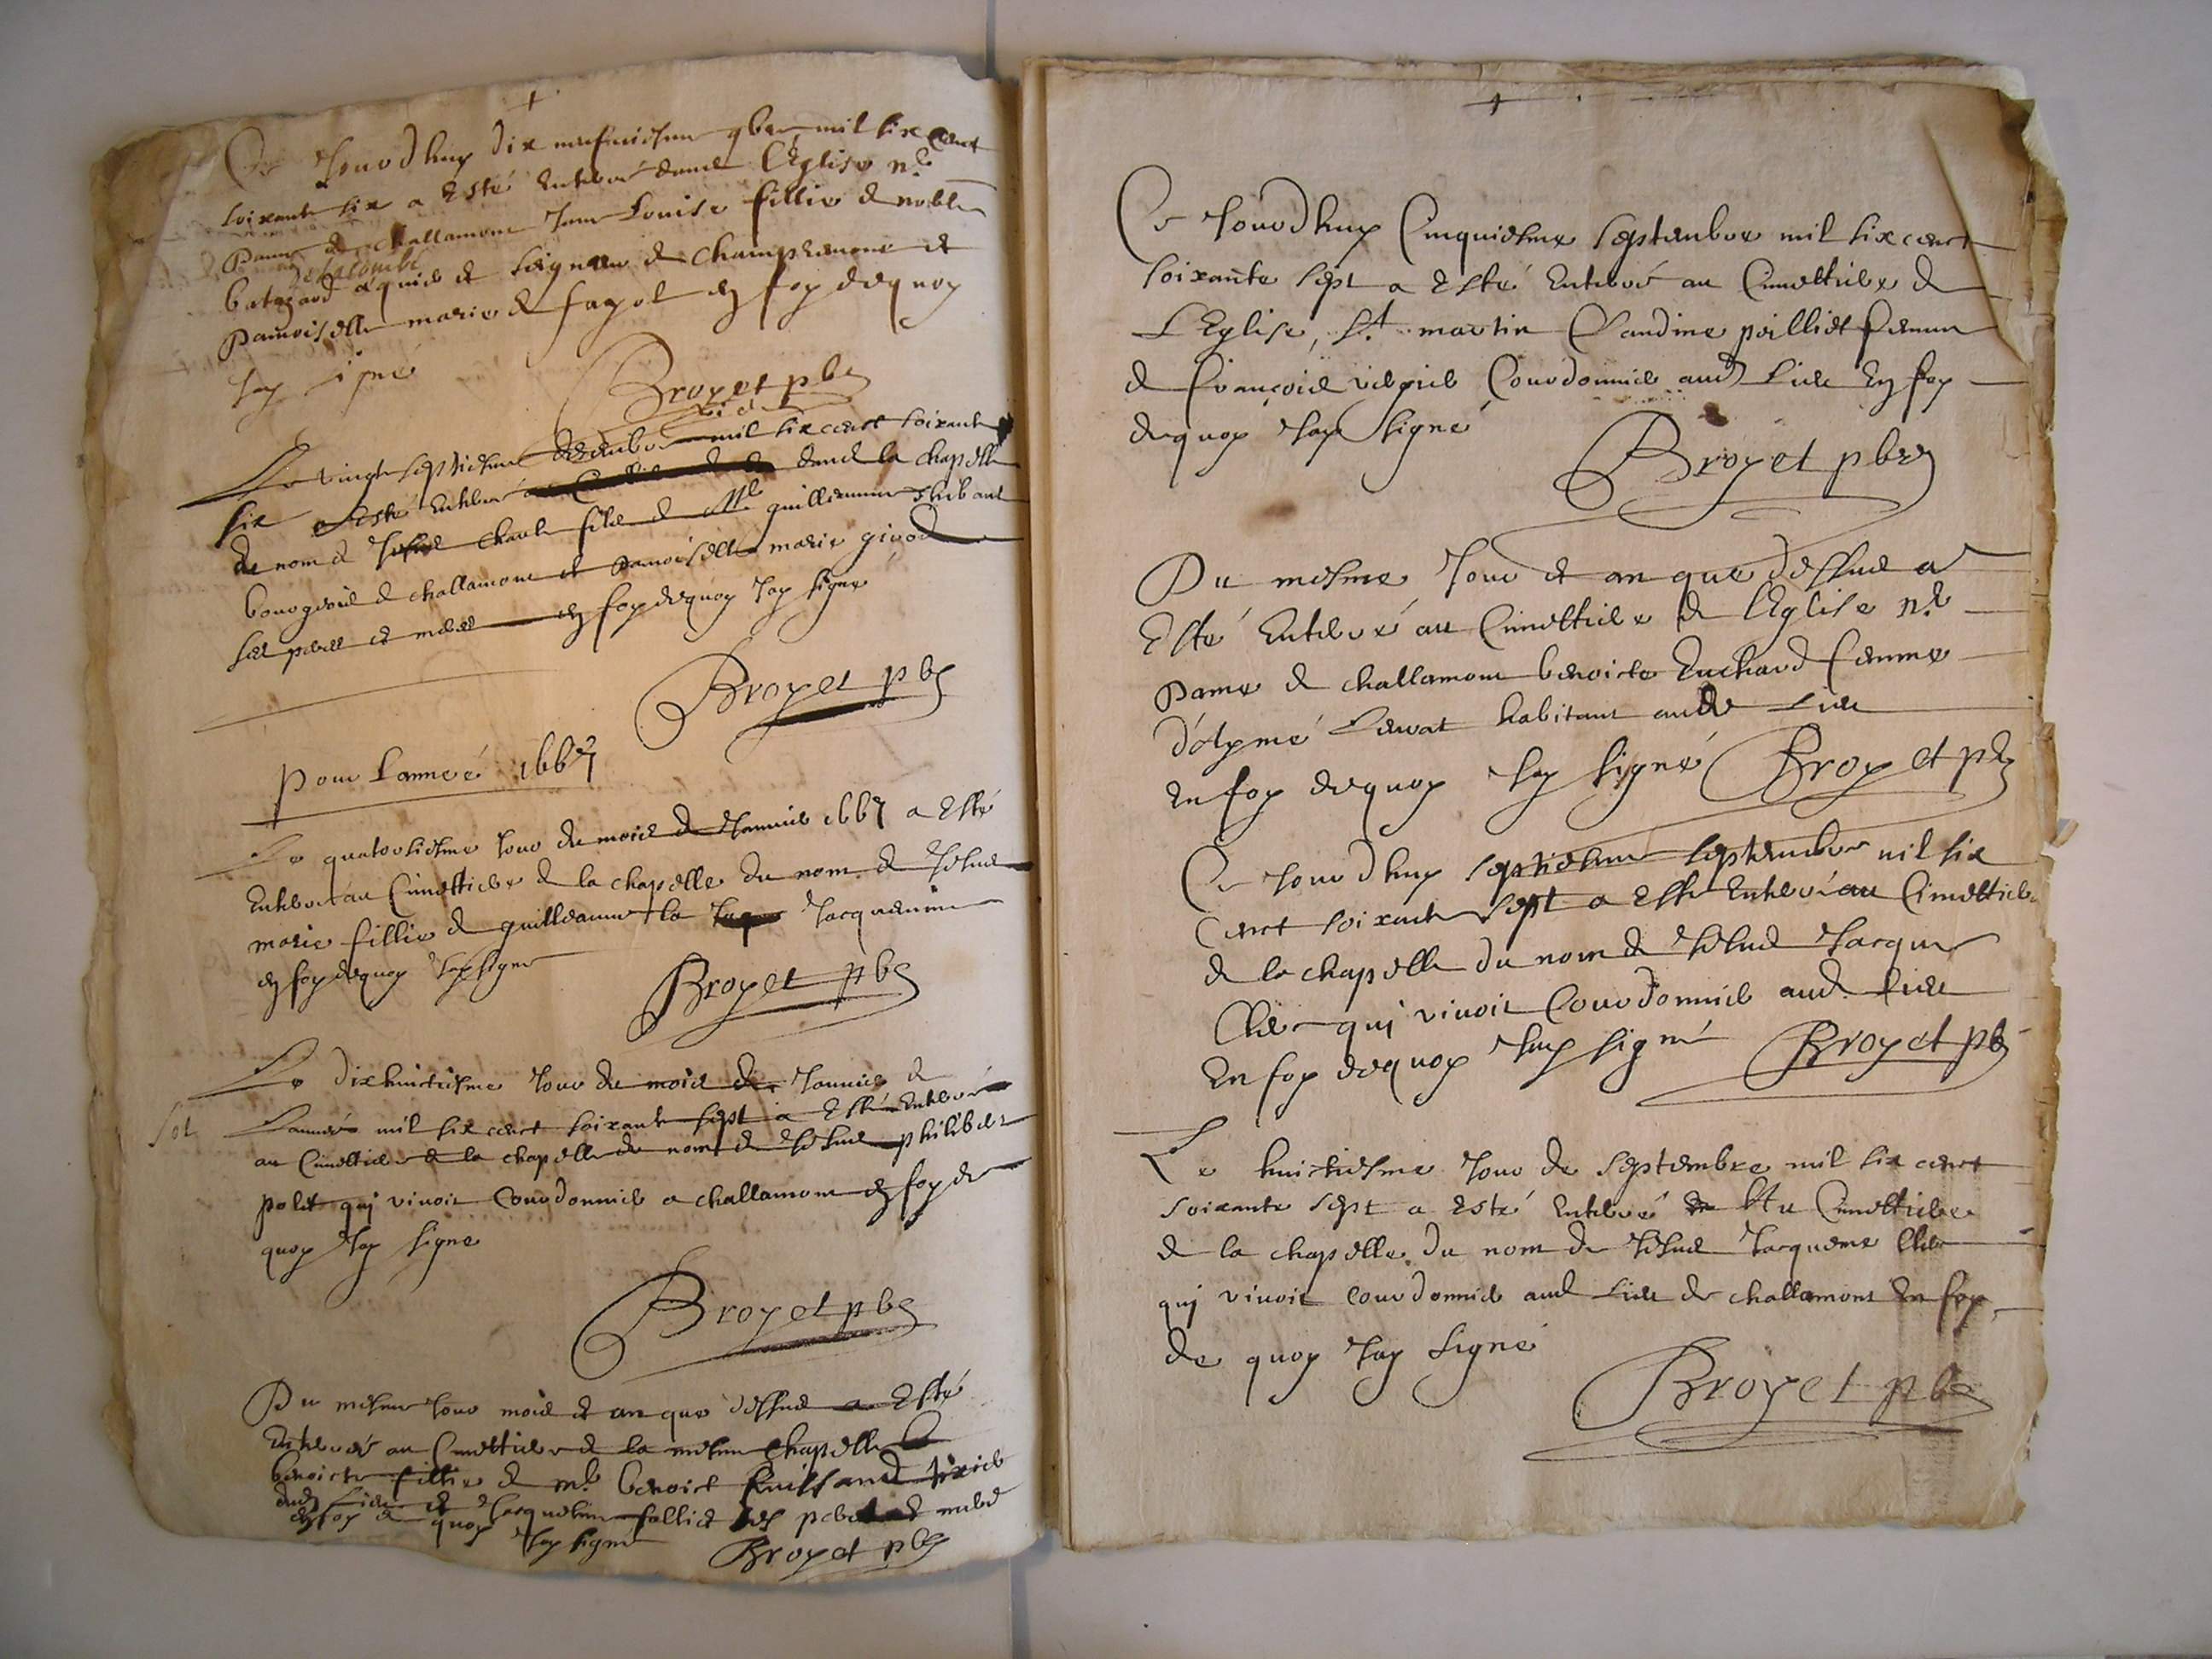 Ce Jourdhuy dix neufuiesme 9bre mil six cent
soixante six a Esté Enterré dans l'Eglise nre
Dame de Challamont Jane Louise fillie de noble
de la Combe
batazard équier et seigneur de Champremont et
Damoiselle marie de fagot en foy dequoy
Jay signé
Broyet pbre
Le vingt septiesme decembre mil six cent soixante
six a Esté Enterré dans la chapelle
du nom de Jesus Charle fils de Me guillieaume Thibaut
bourgeois de challamont et Damoiselle marie girod
ses pere et mere en foy dequoy Jay signe
Broyet pbre
Pour Lanneé 1667
Le quatorsiesme Jour du mois de Januier 1667 a Esté
Enterré au Cimettiere de la chapelle du nom de Jesus
marie fillie de guilleaume la Jacquemine
en foy dequoy Jay signe
Broyet pbre
Le dixhuictiesme Jour du mois de Januier de
Lannée mil six cent soixante sept a Esté Enterré
sol
au Cimettiere de la chapelle du nom de Jesus philiber
polet qui viuoit Courdonnier a challamont en foy de
quoy Jay signe
Broyet pbre
Du mesme Jour mois et an que dessus a Esté
Enterré au Cimettiere de la mesme Chapelle
benoicte fillie de Me benoict
dud Lieu et Jacqueline follict ses pere et mere
en foy de quoy Jay signé
Broyet pbre
Ce Jourdhuy Cinquiesme septembre mil six cent
soixante sept a Esté Enterré au Cimettiere de
L'Eglise, St. martin Claudine poilliet femme
de francois Courdonnier aud Lieu En foy
dequoy Jay signé
Broyet pbre
Du mesme Jour et an que dessus a
Esté Enterré au Cimettiere de l'Eglise nre
Dame de challamont benoicte Euchard femme
d'Aymé habitant audt Lieu
En foy dequoy Jay signé Broyet pbre
Ce Jourdhuy septiesme septembre mil six
Cent soixante sept a Esté Enterré au Cimettiere
de la chapelle du nom de Jesus Jacque
Cler qui viuoit Courdonnier aud. Lieu
En foy dequoy Jay signé Broyet pbre
Le huictiesme Jour de septembre mil six cent
soixante sept a Esté Enterré Au Cimettiere
de la chapelle du nom de Jesus Jacqueme Cler
qui viuoit courdonnier aud Lieu de challamont En foy
de quoy Jay signé
Broyet pbre